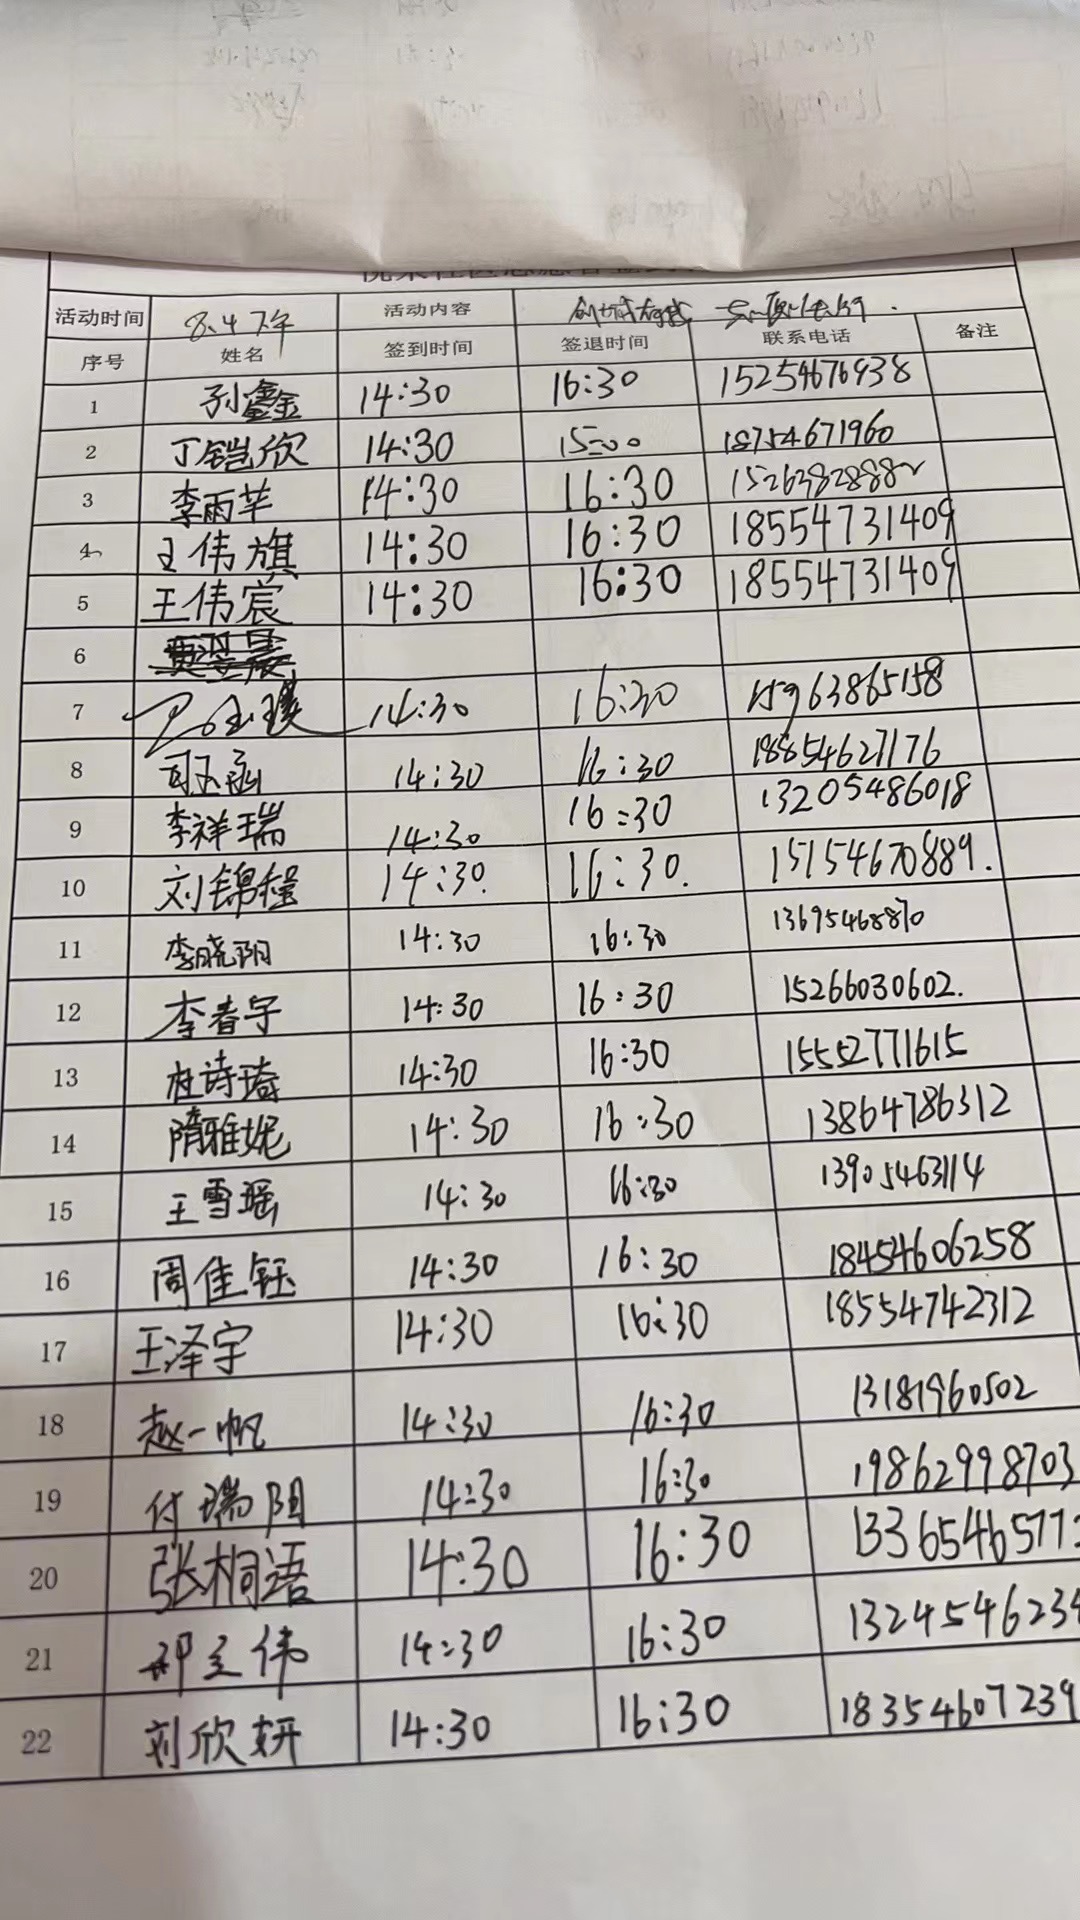 活动时间 8.4下午 活动内容
序号 姓名 签到时间 签退时间 联系电话 备注
1 孙鑫 14:30 16:30 15254676938
2 丁铠欣 14:30 15:00 18754671960
3 李雨芊 14:30 16:30 15263828882
4 王伟旗 14:30 16:30 18554731409
5 王伟宸 14:30 16:30 18554731409
6
7 14:30 16:30 15963865158
8 司玉函 14:30 16:30 18854627176
9 李祥瑞 14:30 16:30 13205486018
10 刘锦程 14:30. 16:30. 15154670889.
11 李晓阳 14:30 16:30 13695468870
12 李春宇 14:30 16:30 15266030602.
13 杜诗琦 14:30 16:30 15552771615
14 隋雅妮 14:30 16:30 13864786312
15 王雪瑶 14:30 16:30 13905463114
16 周佳钰 14:30 16:30 18454606258
17 王泽宇 14:30 16:30 18554742312
18 赵一帆 14:30 16:30 13181960502
19 付瑞阳 14:30 16:30 19862998703
20 张桐语 14:30 16:30
21 邢立伟 14:30 16:30
22 刘欣妍 14:30 16:30 18354607239